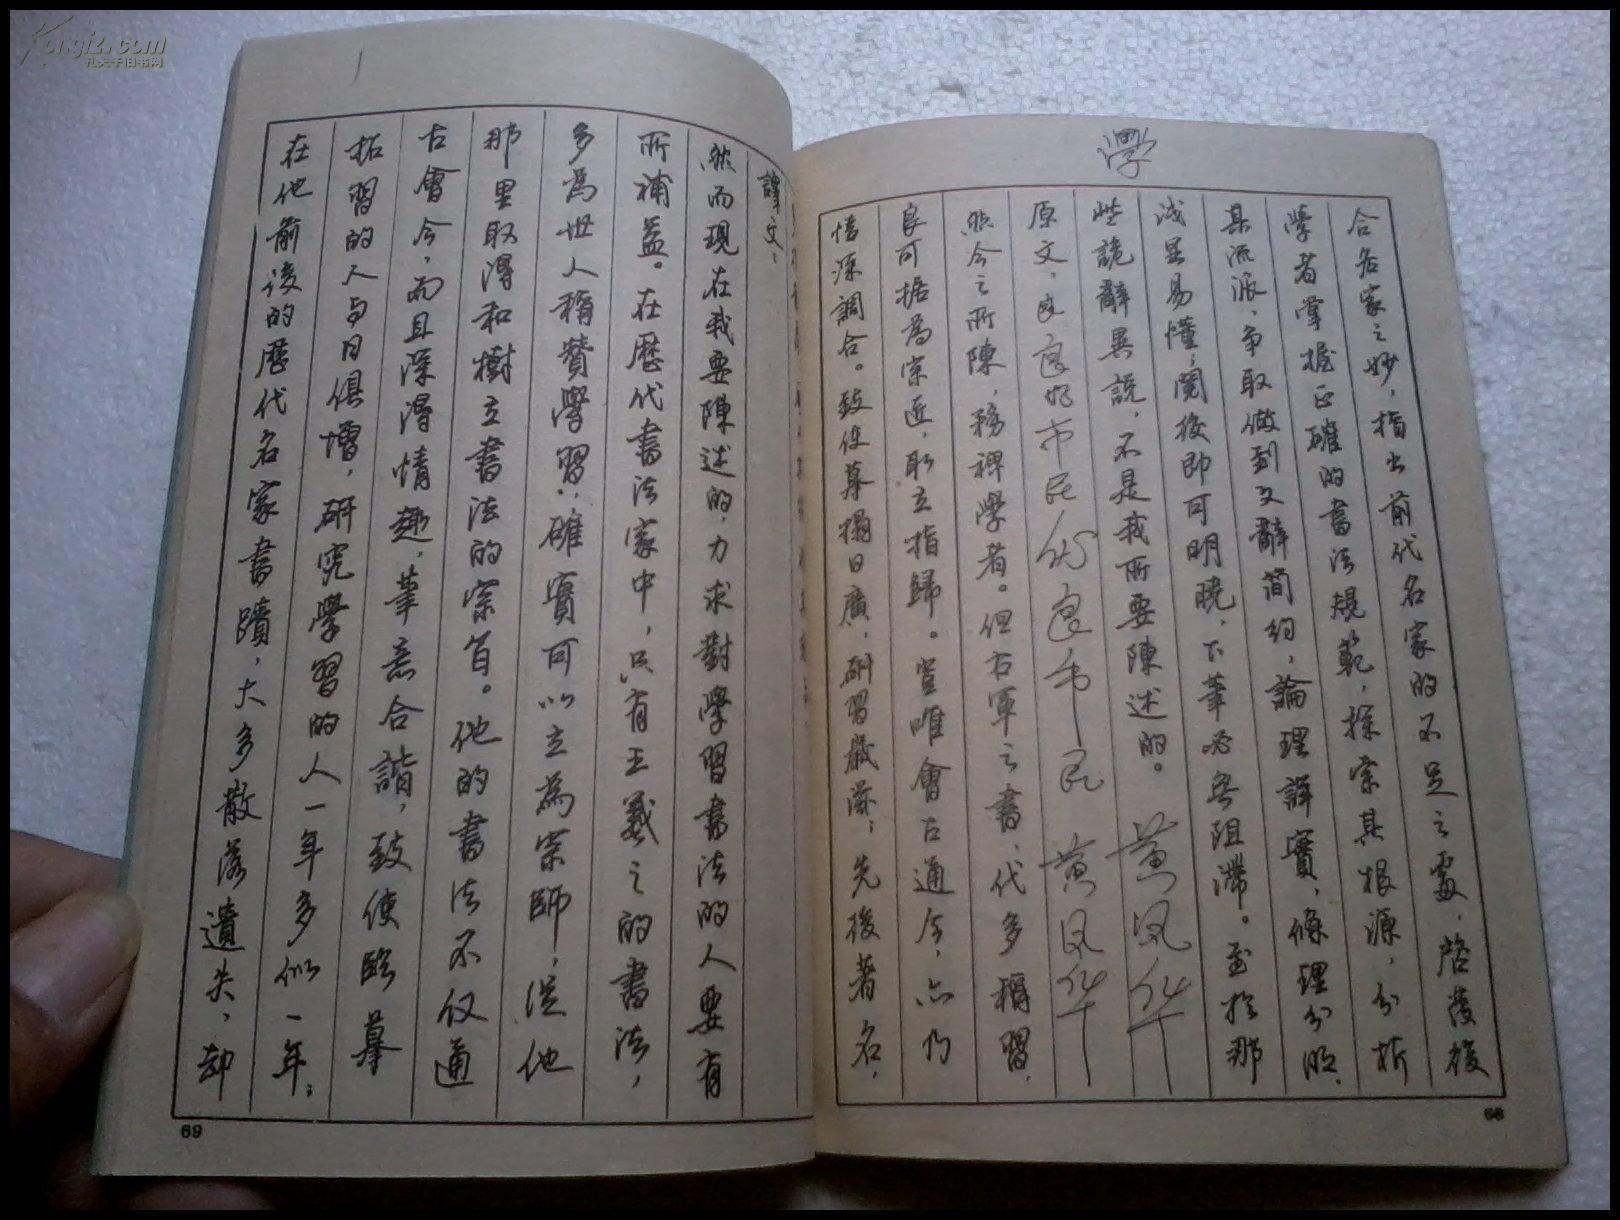 Kongfz.com
孔夫子旧书网
學
合各家之妙，指出前代名家的不足之處，啓發後
學者掌握正確的書法規範，探索其根源，分析
其流派，争取做到文辭简约，論理詳實，條理分明，
浅显易懂；閱後即可明曉，下筆必無阻滯。至於那
些詭辭異說，不是我所要陳述的。 黄凤华
原文： 良良好市民 良市民 黄凤华
然今之所陳，務裨學者。但右軍之書，代多稱習，
良可據為宗匠，取立指歸。豈唯會古通今，亦乃
情深調合。致使摹搨日廣，研習歲滋；先後著名，
68
譯文：
然而現在我要陳述的，力求對學習書法的人要有
所補益。在歷代書法家中，只有王羲之的書法，
多為世人稱贊學習；確實可以立為宗師，從他
那里取得和樹立書法的宗旨。他的書法不仅通
古會今，而且深得情趣，筆意合諧，致使臨摹
拓習的人与日俱增，研究學習的人一年多似一年；
在他前後的歷代名家書蹟，大多散落遺失，却
69